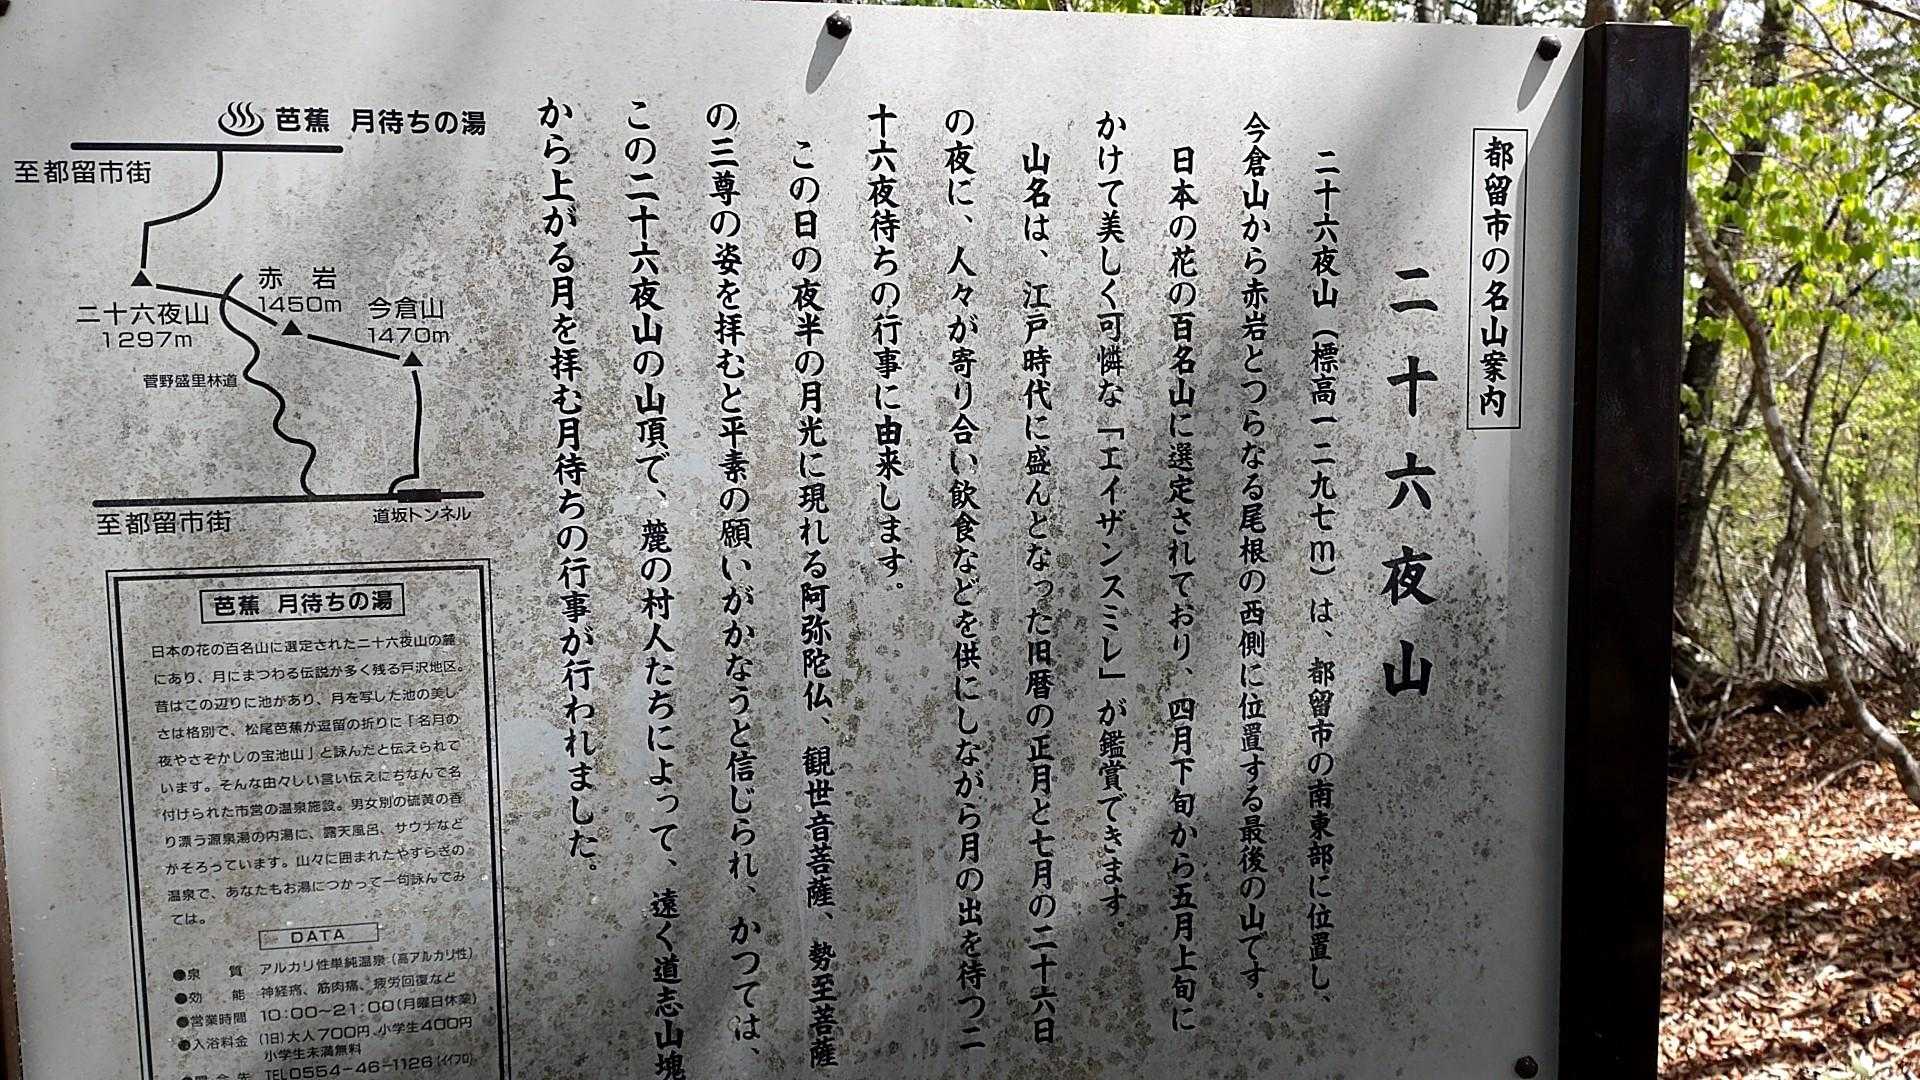 都留市の名山案内
二十六夜山
二十六夜山（標高一二九七m）は、都留市の南東部に位置し、
今倉山から赤岩とつらなる尾根の西側に位置する最後の山です。
日本の花の百名山に選定されており、四月下旬から五月上旬に
かけて美しく可憐な「エイザンスミレ」が鑑賞できます。
山名は、江戸時代に盛んとなった旧暦の正月と七月の二十六日
の夜に、人々が寄り合い飲食などを供にしながら月の出を待つ二
十六夜待ちの行事に由来します。
この日の夜半の月光に現れる阿弥陀仏、観世音菩薩、勢至菩薩
の三尊の姿を拝むと平素の願いがかなうと信じられ、かつては、
この二十六夜山の山頂で、麓の村人たちによって、遠く道志山塊
から上がる月を拝む月待ちの行事が行われました。
芭蕉 月待ちの湯
至都留市街
赤岩
1450m
今倉山
1470m
二十六夜山
1297m
菅野盛里林道
至都留市街
道坂トンネル
芭蕉 月待ちの湯
日本の花の百名山に選定された二十六夜山の麓
にあり、月にまつわる伝説が多く残る戸沢地区。
昔はこの辺りに池があり、月を写した池の美し
さは格別で、松尾芭蕉が逗留の折りに「名月の
夜やさぞかしの宝池山」と詠んだと伝えられて
います。そんな由々しい言い伝えにちなんで名
付けられた市営の温泉施設。男女別の硫黄の香
り漂う源泉湯の内湯に、露天風呂、サウナなど
がそろっています。山々に囲まれたやすらぎの
温泉で、あなたもお湯につかって一句詠んでみ
ては。
DATA
●泉質 アルカリ性単純温泉（高アルカリ性）
●効能 神経痛、筋肉痛、疲労回復など
●営業時間 10:00～21:00（月曜日休業）
●入浴料金 （1日）大人700円、小学生400円
小学生未満無料
TEL0554-46-1126（イイフロ）